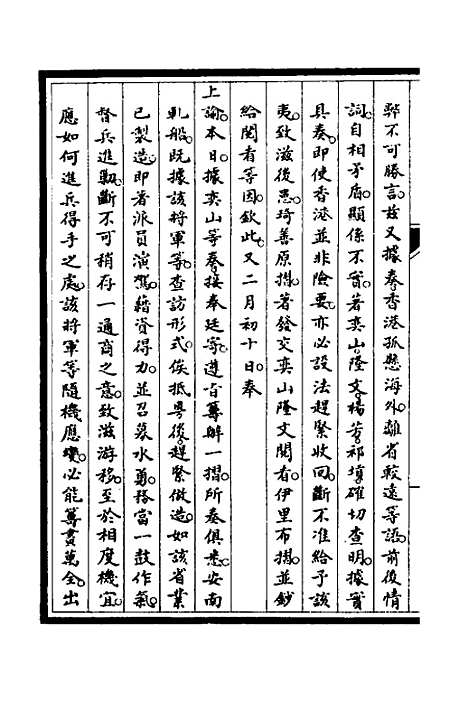 弊不可勝言。茲又據奏香港孤懸海外。離省較遠等語。前後情
詞。自相矛盾。顯係不實。著奕山隆文楊芳祁𡎴確切查明。據實
具奏。即使香港並非險要。亦必設法趕緊收回。斷不准給予該
夷。致滋後患。琦善原摺。著發交奕山隆文閱看。伊里布摺。並鈔
給閱看等因。欽此。又二月初十日。奉
上諭。本日。據奕山等奏。接奉廷寄。遵旨籌辦一摺。所奏俱悉。安南
軋船。既據該將軍等。查訪形式。俟抵粵後。趕緊倣造。如該省業
已製造。即著派員演駕。藉資得力。並召募水勇。務當一鼓作氣。
督兵進勦。斷不可稍存一通商之意。致滋游移。至於相度機宜。
應如何進兵得手之處。該將軍等隨機應變。必能籌畫萬全。出